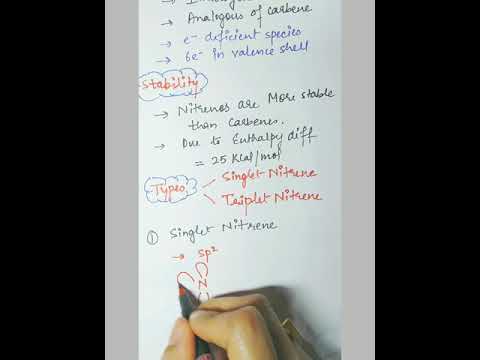 → Analogous of carbene
→ e⁻ deficient species
→ 6e⁻ in valence shell
Stability
→ Nitrenes are More stable
than Carbenes.
→ Due to Enthalpy diff
= 25 Kcal/mol
Types
Singlet Nitrene
Triplet Nitrene
① Singlet Nitrene
→ sp²
N